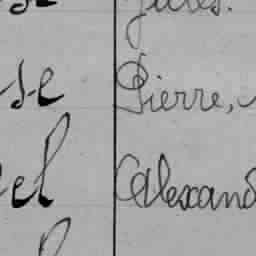 Jules.
se Pierre,
el Alexand